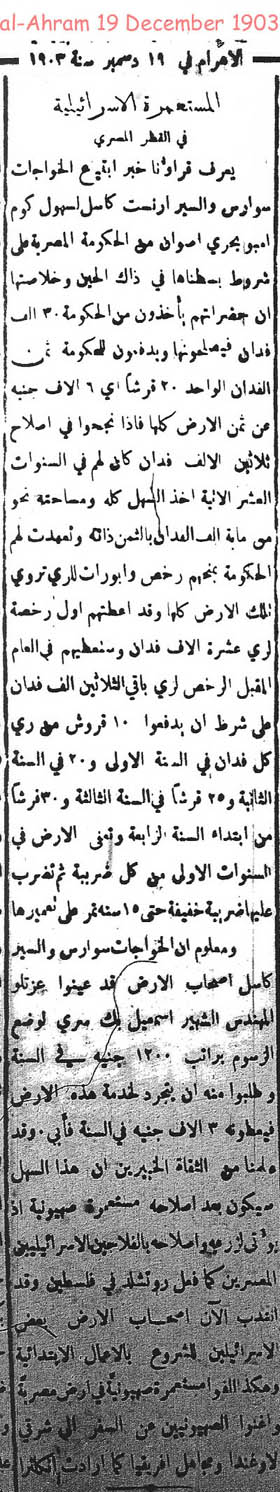 al-Ahram 19 December 1903
الاهرام في ١٩ دسمبر سنة ١٩٠٣
المستعمرة الاسرائيلية
في القطر المصري
يعرف قراؤنا خبر ابتياع الخواجات
سوارس والسير ارنست كاسل لسهول كوم
امبو بحري اصوان من الحكومة المصرية على
شروط بسطناها في ذاك الحين وخلاصتها
ان حضراتهم يأخذون من الحكومة ٣٠ الف
فدان فيصلحونها ويدفعون للحكومة ثمن
الفدان الواحد ٢٠ قرشاً اي ٦ الاف جنيه
عن ثمن الارض كلها فاذا نجحوا في اصلاح
ثلاثين الالف فدان كان لهم في السنوات
العشر الاتية اخذ السهل كله ومساحته نحو
من ماية الف الفدان بالثمن ذاته وتعهدت لهم
الحكومة بمنحهم رخص وابورات للري تروي
تلك الارض كلها وقد اعطتهم اول رخصة
لري عشرة الاف فدان وستعطيهم في العام
المقبل الرخص لري باقي الثلاثين الف فدان
على شرط ان يدفعوا ١٠ قروش من ري
كل فدان في السنة الاولى و ٢٠ في السنة
الثانية و ٢٥ قرشاً في السنة الثالثة و ٣٠ قرشاً
من ابتداء السنة الرابعة وتعفى الارض في
السنوات الاولى من كل ضريبة ثم تضرب
عليها ضريبة خفيفة حتى ١٥ سنة تمر على تعميرها
ومعلوم ان الخواجات سوارس والسير
كاسل اصحاب الارض قد عينوا عزتلو
المهندس الشهير اسمعيل بك سري لوضع
الرسوم براتب ١٢٠٠ جنيه في السنة
وطلبوا منه ان يتجرد لخدمة هذه الارض
فيعطونه ٣ الاف جنيه في السنة فأبى. وقد
علمنا من الثقاة الخبيرين ان هذا السهل
سيكون بعد اصلاحه مستعمرة صهيونية اذ
يؤتى لزرعه واصلاحه بالفلاحين الاسرائيليين
المعسرين كما فعل روتشلد في فلسطين وقد
انتدب الآن اصحاب الارض بعض
الاسرائيليين للشروع بالاعمال الابتدائية
وهكذا الفوا مستعمرة صهيونية في ارض مصرية
واغنوا الصهيونيين عن السفر الى شرقي
اوغندا ومجاهل افريقيا كما ارادت انكلترا